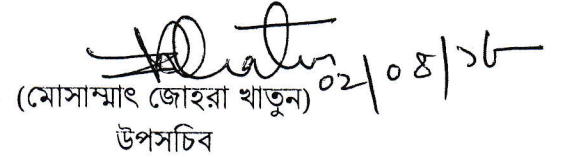 ০২/০৪/১৮
(মোসাম্মাৎ জোহরা খাতুন)
উপসচিব